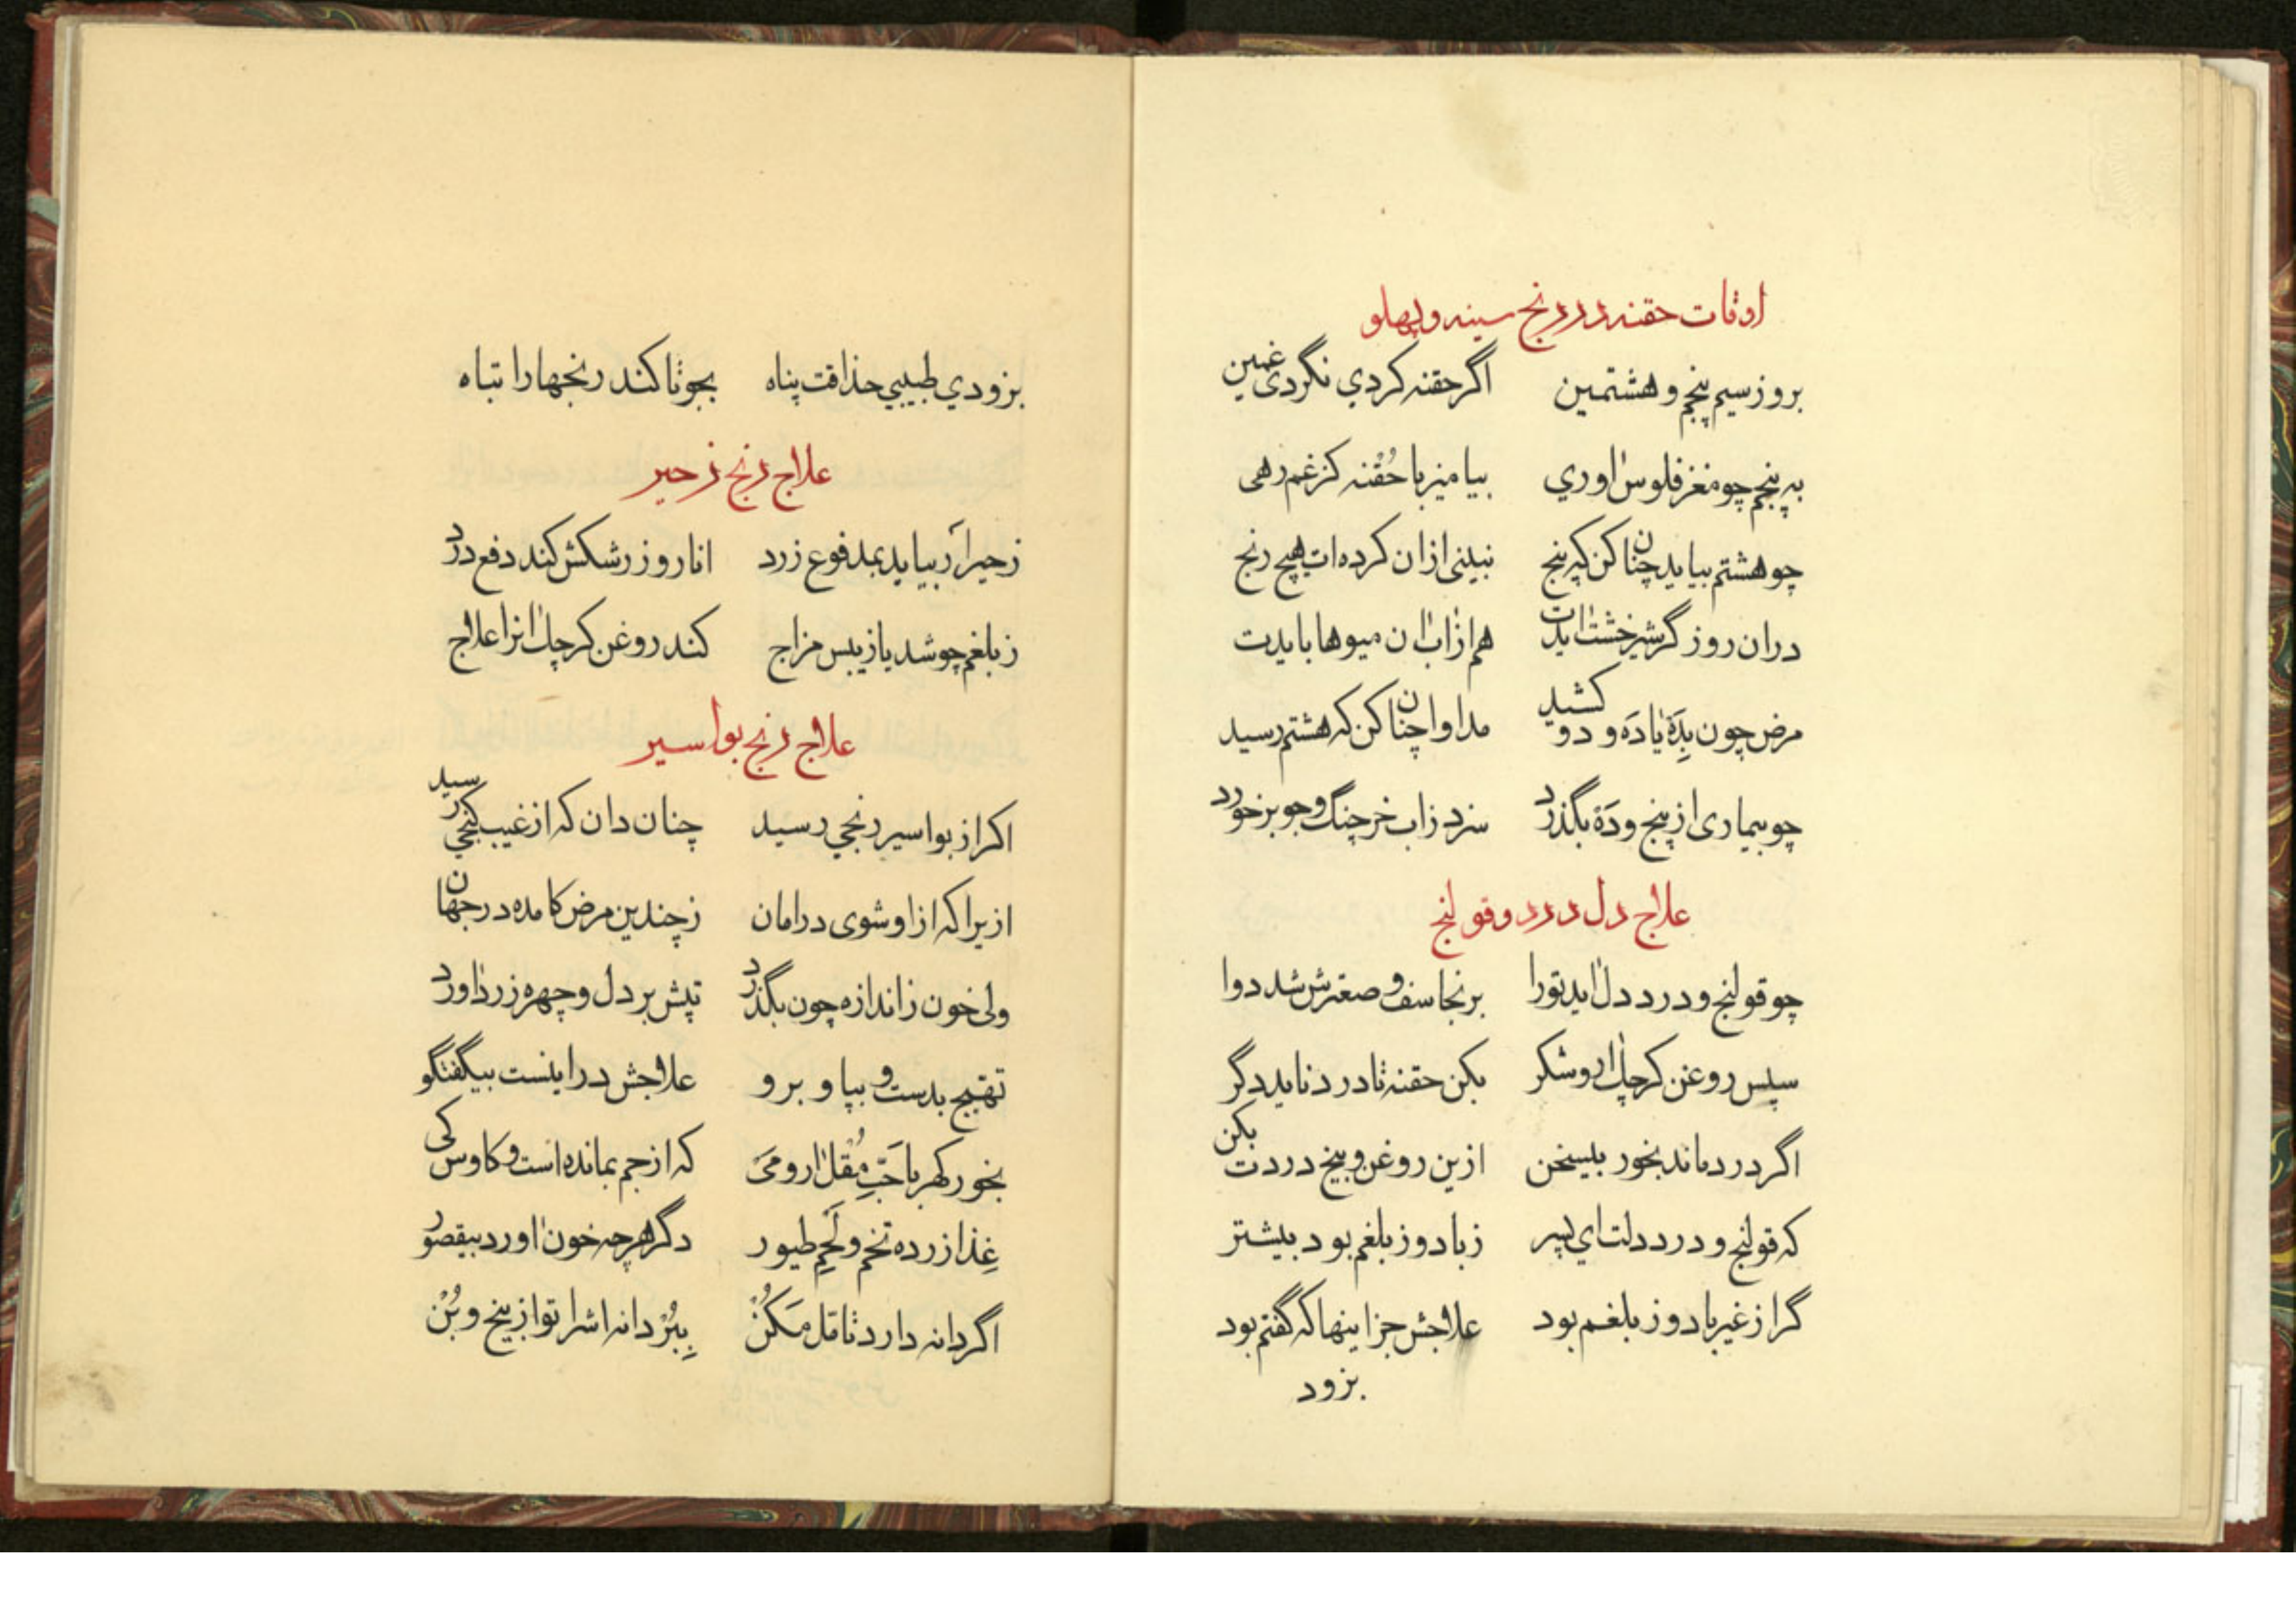 اوقات حقنه در رنج سینه و پهلو
بروز سیم پنجم و هشتمین اگر حقنه کردي نگردی غمین
به پنجم چو مغز فلوس اوري بیامیز با حُقْنه کز غم رهی
چو هشتم بیاید چنان کن که پنج نبینی ازان کرده ات هیچ رنج
دران روز گر شیرخشت ایدت هم از اب ان میوها بایدت
مرض چون بِدَه یا دَه و دو کشید مداوا چنان کن که هشتم رسید
چو بیماری از پنج و دَه بگذرد سزد زاب خرچنگ و جو برخورد
علاج دل درد و قولنج
چو قولنج و درد دل اید تورا برنجاسف و صعترش شد دوا
سپس روغن کرچك ار و شکر بکن حقنه تا درد ناید دگر
اگر درد ماند بخور بیسخن ازین روغن و بیخ دردت بکن
که قولنج و درد دلت اي پسر زباد و ز بلغم بود بیشتر
گر از غیر باد و ز بلغم بود علاجش جز اینها که گفتم بود
بزود
بزودي طبیبي حذاقت پناه بجو تا کند رنجها را تباه
علاج رنج زحیر
زحیر آر بیاید بمدفوع زرد انار و زرشکش کند دفع درد
زبلغم چو شد یا زیبس مزاج کند روغن کرچك انرا علاج
علاج رنج بواسیر
اکر از بواسیر رنجي رسید چنان دان که از غیب گنجي رسید
ازیرا که از او شوی در امان زچندین مرض کامده در جهان
ولی خون زاندازه چون بگذرد تپش بر دل و چهره زرد اورد
تهیج بدست و بپا و برو علاجش در اینست بیگفتگو
بخور کهربا حَبِّ مُقْل ارومَی که از جم بمانده است و کاوس کی
غِذا زرده تخم و لَحْمِ طیور دگر هرچه خون اورد بیقصور
اگر دانه دارد تامّل مَکُنْ بِبُرْ دانه اشرا تو از بیخ و بُنْ